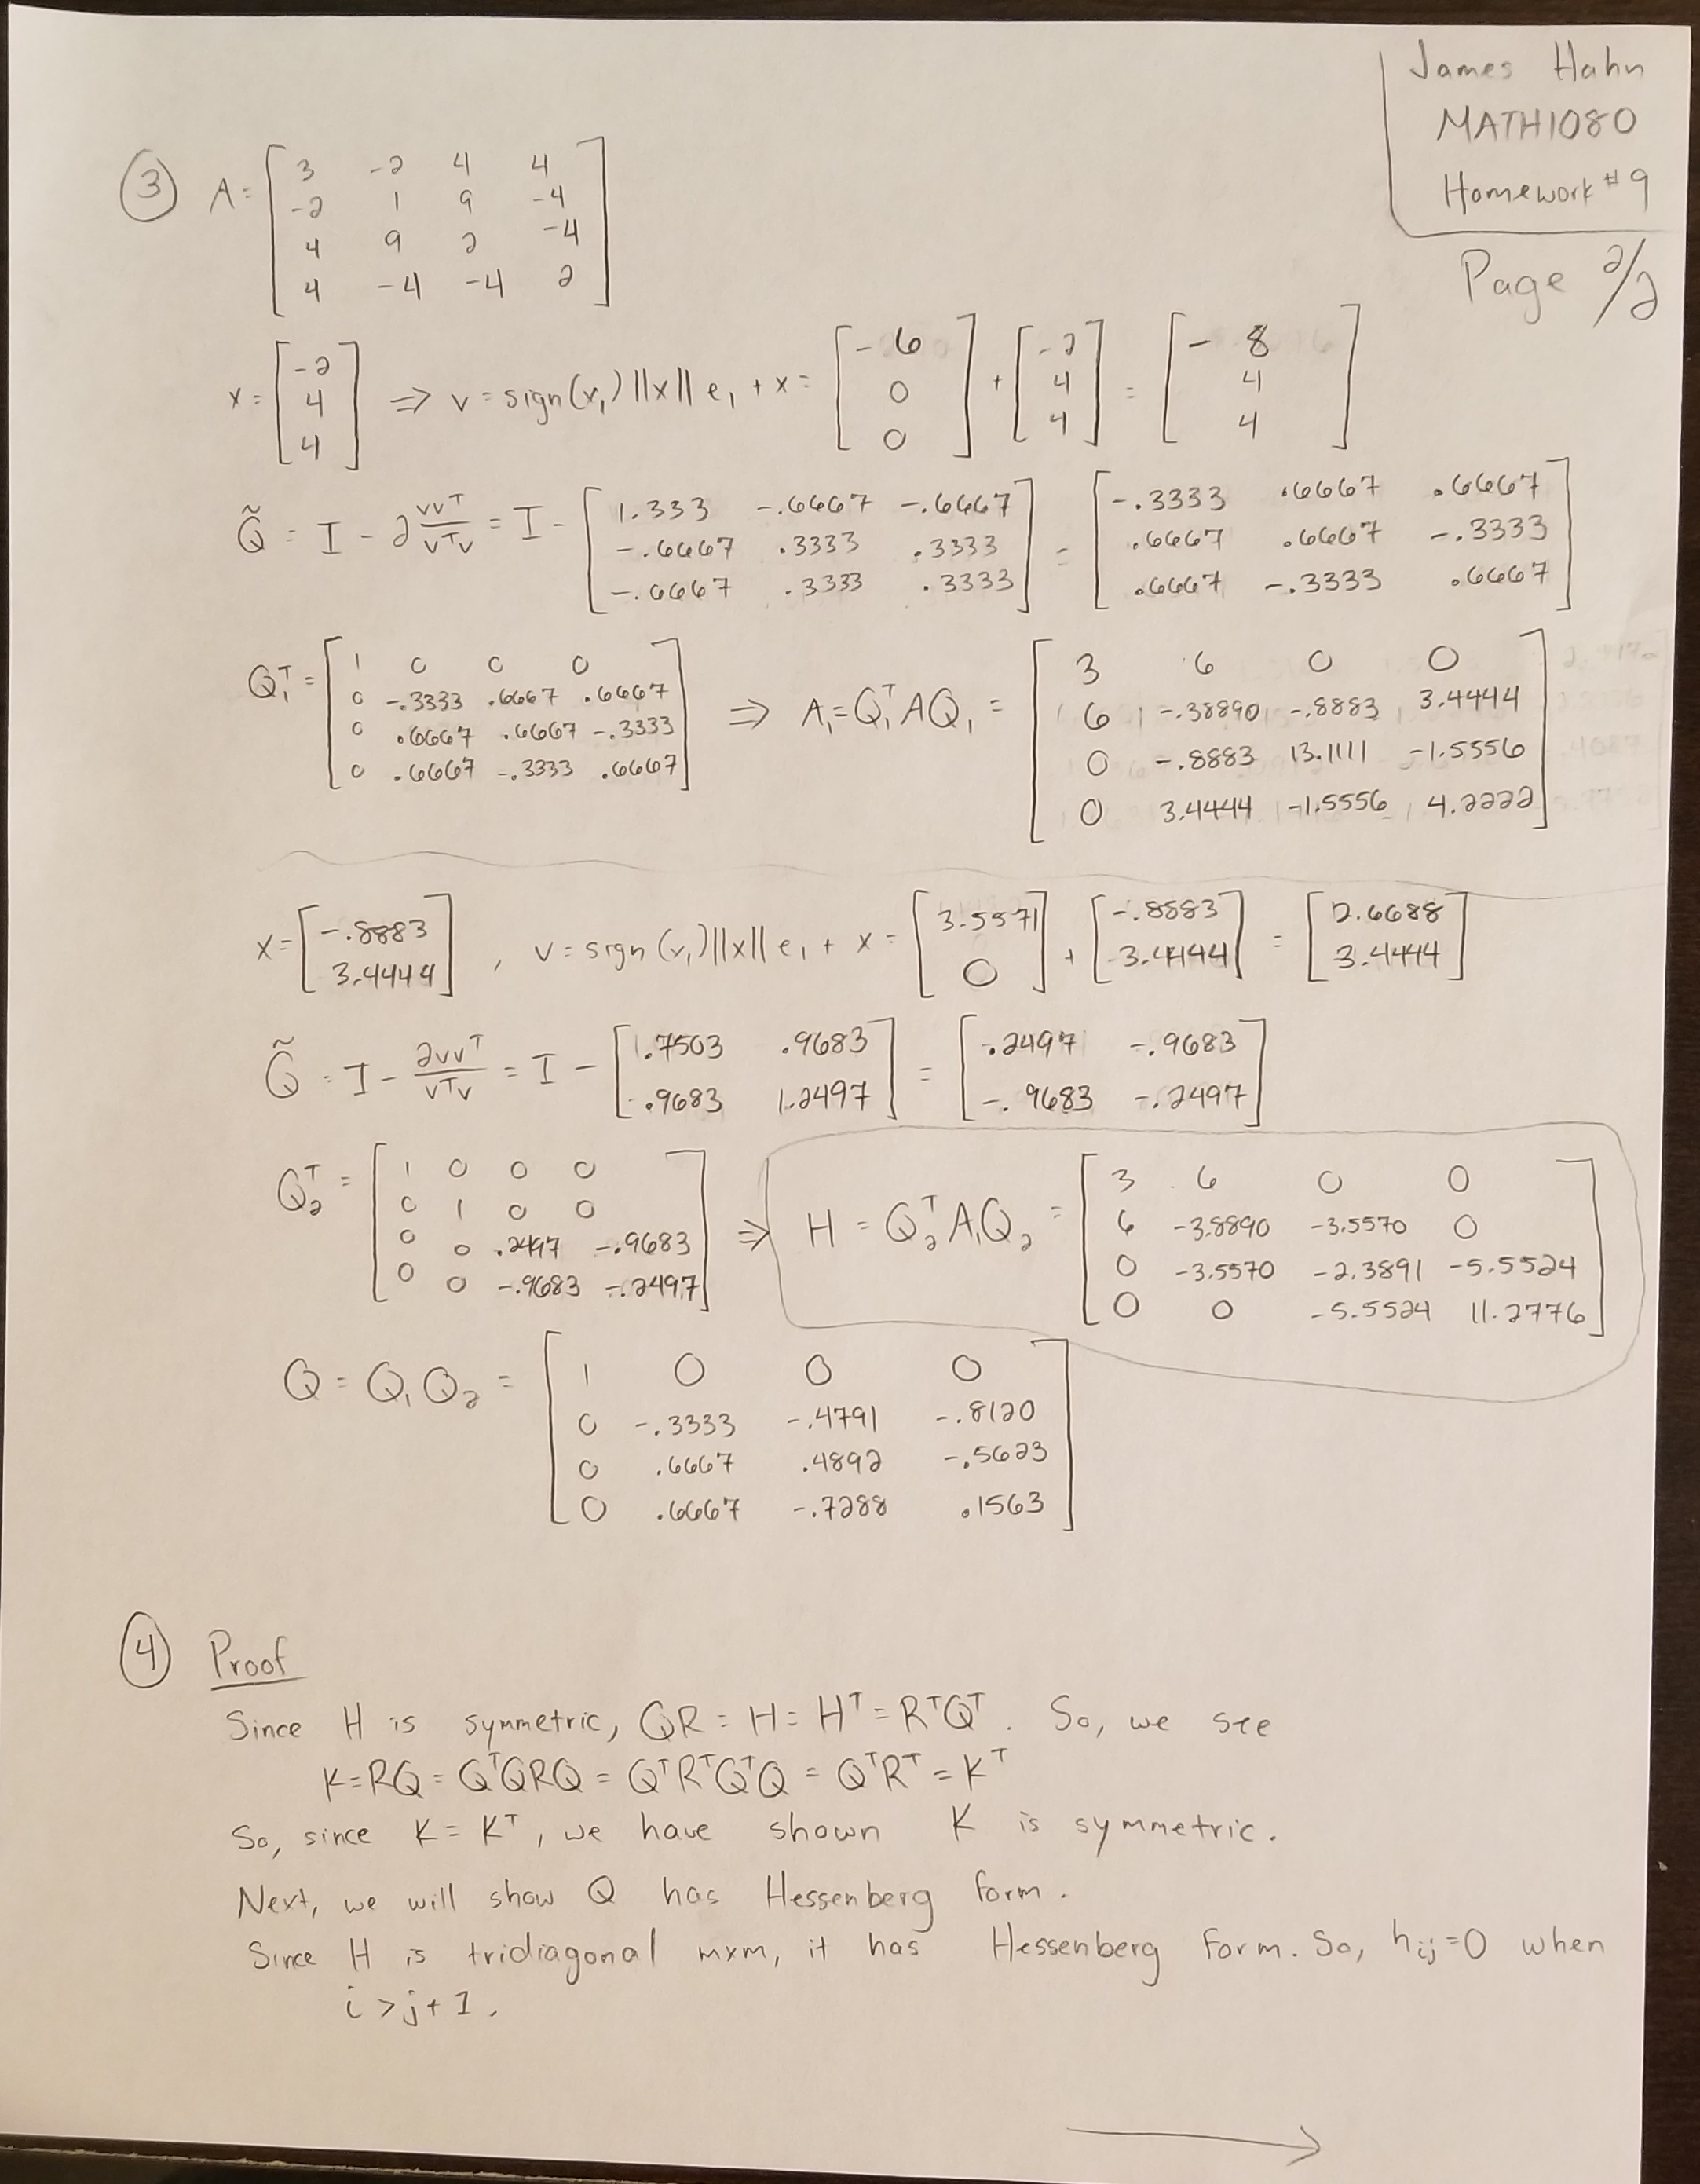 James Hahn
MATH1080
Homework #9
Page 2/2
③ A = [ 3 -2 4 4
-2 1 9 -4
4 9 2 -4
4 -4 -4 2 ]
x = [ -2 4 4 ] ⇒ v = sign(x₁) ||x|| e₁ + x = [ -6 0 0 ] + [ -2 4 4 ] = [ -8 4 4 ]
Q̃ = I - 2 vvᵀ/vᵀv = I - [ 1.333 -.6667 -.6667
-.6667 .3333 .3333
-.6667 .3333 .3333 ] = [ -.3333 .6667 .6667
.6667 .6667 -.3333
.6667 -.3333 .6667 ]
Q₁ᵀ = [ 1 0 0 0
0 -.3333 .6667 .6667
0 .6667 .6667 -.3333
0 .6667 -.3333 .6667 ] ⇒ A₁ = Q₁ᵀAQ₁ = [ 3 6 0 0
6 -.38890 -.8883 3.4444
0 -.8883 13.1111 -1.5556
0 3.4444 -1.5556 4.2222 ]
x = [ -.8883 3.4444 ] , v = sign(x₁) ||x|| e₁ + x = [ 3.5571 0 ] + [ -.8883 3.4444 ] = [ 2.6688 3.4444 ]
Q̃ = I - 2vvᵀ/vᵀv = I - [ .7503 .9683
.9683 1.2497 ] = [ .2497 -.9683
-.9683 -.2497 ]
Q₂ᵀ = [ 1 0 0 0
0 1 0 0
0 0 .2497 -.9683
0 0 -.9683 -.2497 ] ⇒ H = Q₂ᵀA₁Q₂ = [ 3 6 0 0
6 -3.8890 -3.5570 0
0 -3.5570 -2.3891 -5.5524
0 0 -5.5524 11.2776 ]
Q = Q₁Q₂ = [ 1 0 0 0
0 -.3333 -.4791 -.8120
0 .6667 .4892 -.5623
0 .6667 -.7288 .1563 ]
④ Proof
Since H is symmetric, QR = H = Hᵀ = RᵀQᵀ. So, we see
K = RQ = QᵀQRQ = QᵀRᵀQᵀQ = QᵀRᵀ = Kᵀ
So, since K = Kᵀ, we have shown K is symmetric.
Next, we will show Q has Hessenberg form.
Since H is tridiagonal mxm, it has Hessenberg form. So, hᵢⱼ=0 when
i > j + 1.